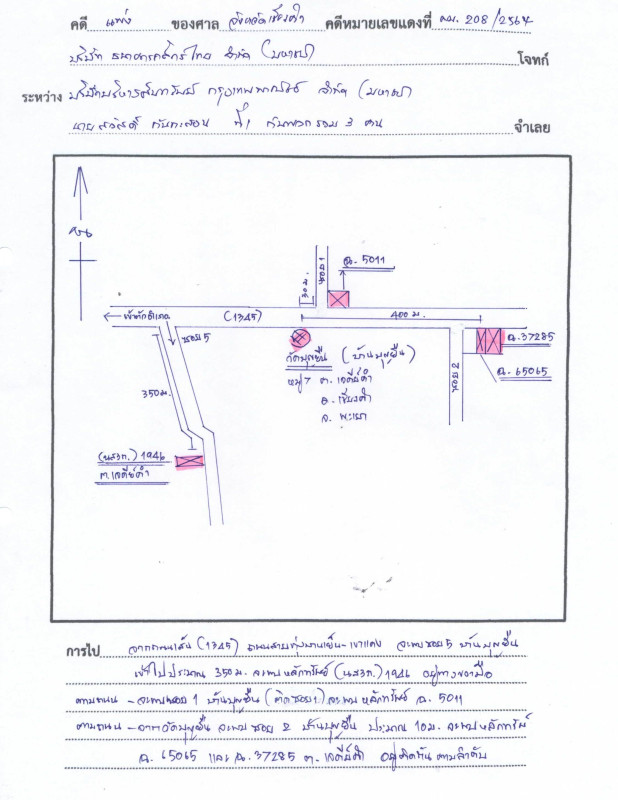 คดี แพ่ง ของศาล จังหวัดเชียงคำ คดีหมายเลขแดงที่ ผบ. 208/2564
บริษัท ธนาคารกสิกรไทย จำกัด (มหาชน) โจทก์
ระหว่าง บริษัทบริหารสินทรัพย์ กรุงเทพพาณิชย์ จำกัด (มหาชน)
นาย สวัสดิ์ ที่ 1 กับพวกรวม 3 คน จำเลย
ฉ. 5011
ซอย 1
30 ม.
400 ม.
(1345)
ซอย 5
350 ม.
ฉ. 37285
ฉ. 65065
ซอย 2
วัดบุญยืน (บ้านบุญยืน)
หมู่ 7 ต. เจดีย์คำ
อ. เชียงคำ
จ. พะเยา
(นส3ก.) 1946
ต. เจดีย์คำ
การไป จากถนนเส้น (1345) ถนนสาย จะพบซอย 5 บ้านบุญยืน
เข้าไปประมาณ 350 ม. จะพบหลักทรัพย์ (นส3ก.) 1946 อยู่ทางขวามือ
ตามถนน - จะพบซอย 1 บ้านบุญยืน (ติดซอย 1) จะพบหลักทรัพย์ ฉ. 5011
ตามถนน - จากวัดบุญยืน จะพบ ซอย 2 บ้านบุญยืน ประมาณ 10 ม. จะพบหลักทรัพย์
ฉ. 65065 และ ฉ. 37285 ต. เจดีย์คำ อยู่ติดกัน ตามลำดับ